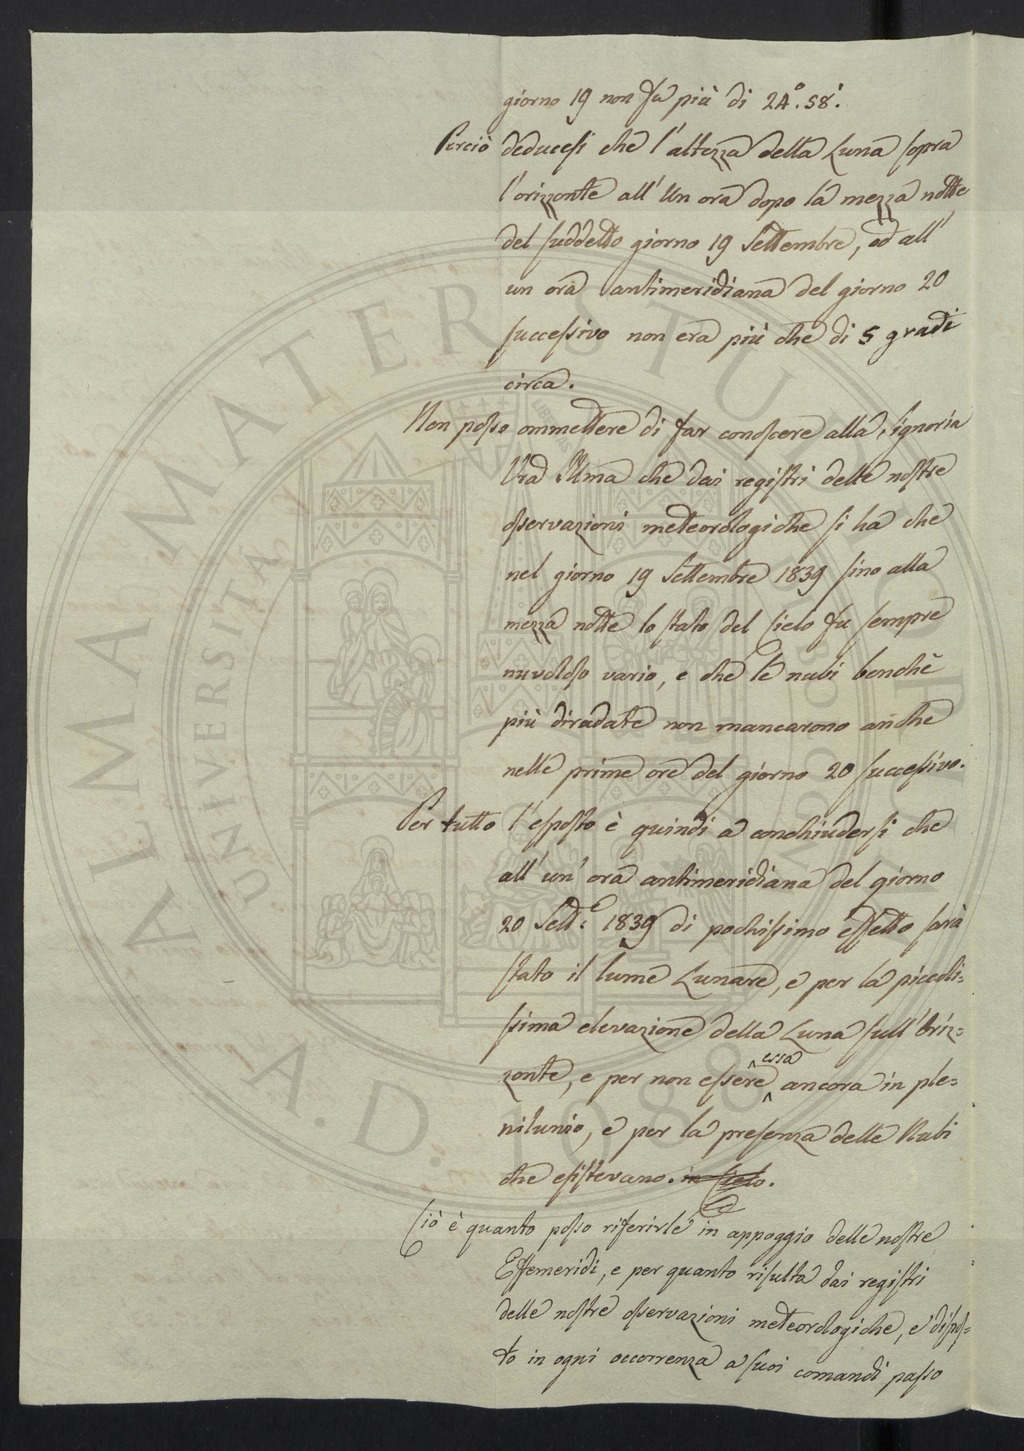 giorno 19 non fu più di 24°. 58'.
Perciò deducesi che l'altezza della Luna sopra
l'orizzonte all'Un ora dopo la mezza notte
del suddetto giorno 19 Settembre, od all'
un ora antimeridiana del giorno 20
successivo non era più che di 5 gradi
circa.
Non posso ommettere di far conoscere alla Signoria
Vra Illma che dai registri delle nostre
osservazioni meteorologiche si ha che
nel giorno 19 Settembre 1839 sino alla
mezza notte lo stato del Cielo fu sempre
nuvoloso vario, e che le nubi benchè
più diradate non mancarono anche
nelle prime ore del giorno 20 successivo.
Per tutto l'esposto è quindi a conchiudersi che
all'un'ora antimeridiana del giorno
20 Sett.e 1839 di pochissimo effetto sarà
stato il lume Lunare, e per la piccoli=
ssima elevazione della Luna sull'Oriz=
zonte, e per non essere essa ancora in ple=
nilunio, e per la presenza delle Nubi
che esistevano. in Cielo.
Ciò è quanto posso riferirle in appoggio delle nostre
Effemeridi, e per quanto risulta dai registri
delle nostre osservazioni meteorologiche, e dispos=
to in ogni occorrenza a suoi comandi passo
ALMA MATER STUDIORUM
UNIVERSITÀ DI BOLOGNA
A.D. 1088